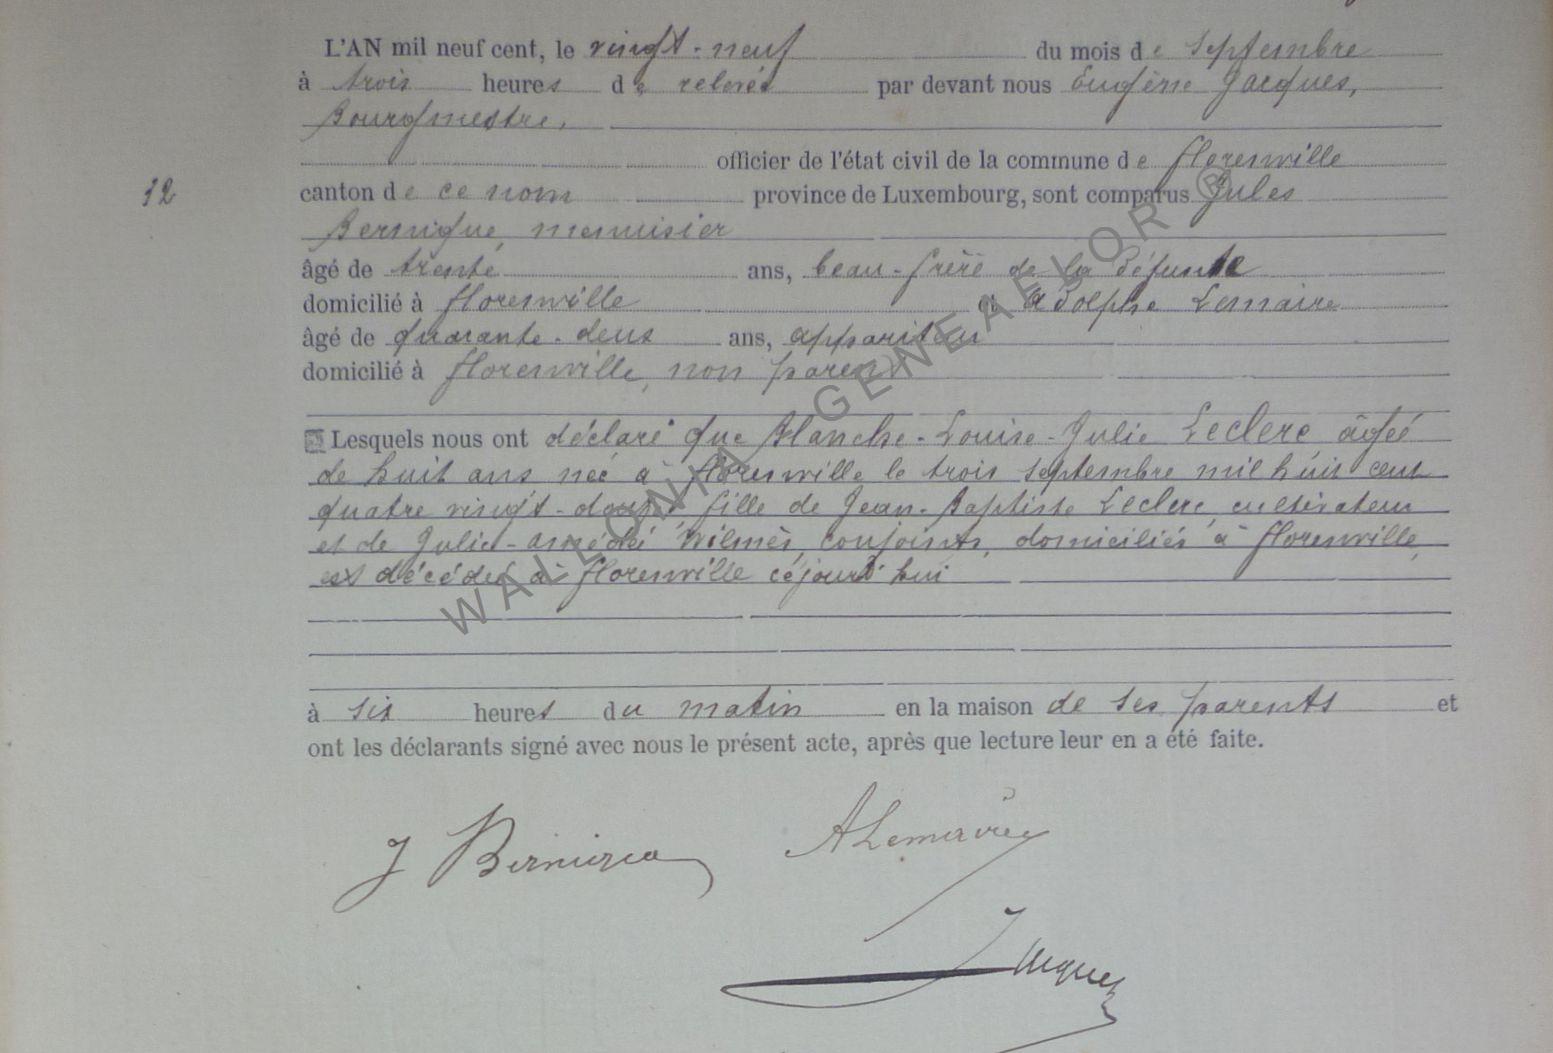 L'AN mil neuf cent, le vingt-neuf du mois de septembre
à trois heures de relevée par devant nous Eugène Jacques,
Bourgmestre,
officier de l'état civil de la commune de florenville
12
canton de ce nom province de Luxembourg, sont comparus Jules
Bernique, menuisier
âgé de trente ans, beau-frère de la défunte
domicilié à florenville et Adolphe Lemaire
âgé de quarante-deux ans, appariteur
domicilié à florenville, non parent
Lesquels nous ont déclaré que Blanche-Louise-Julie Leclerc âgée
de huit ans née à florenville le trois septembre mil huit cent
quatre vingt-douze, fille de Jean-Baptiste Leclerc, cultivateur
et de Julie-Amédée Wilmès, conjoints, domiciliés à florenville,
est décédée à florenville cejourd'hui
à six heures du matin en la maison de ses parents et
ont les déclarants signé avec nous le présent acte, après que lecture leur en a été faite.
J ALemaire
Jacques
WALLONIA GENEALOR ®